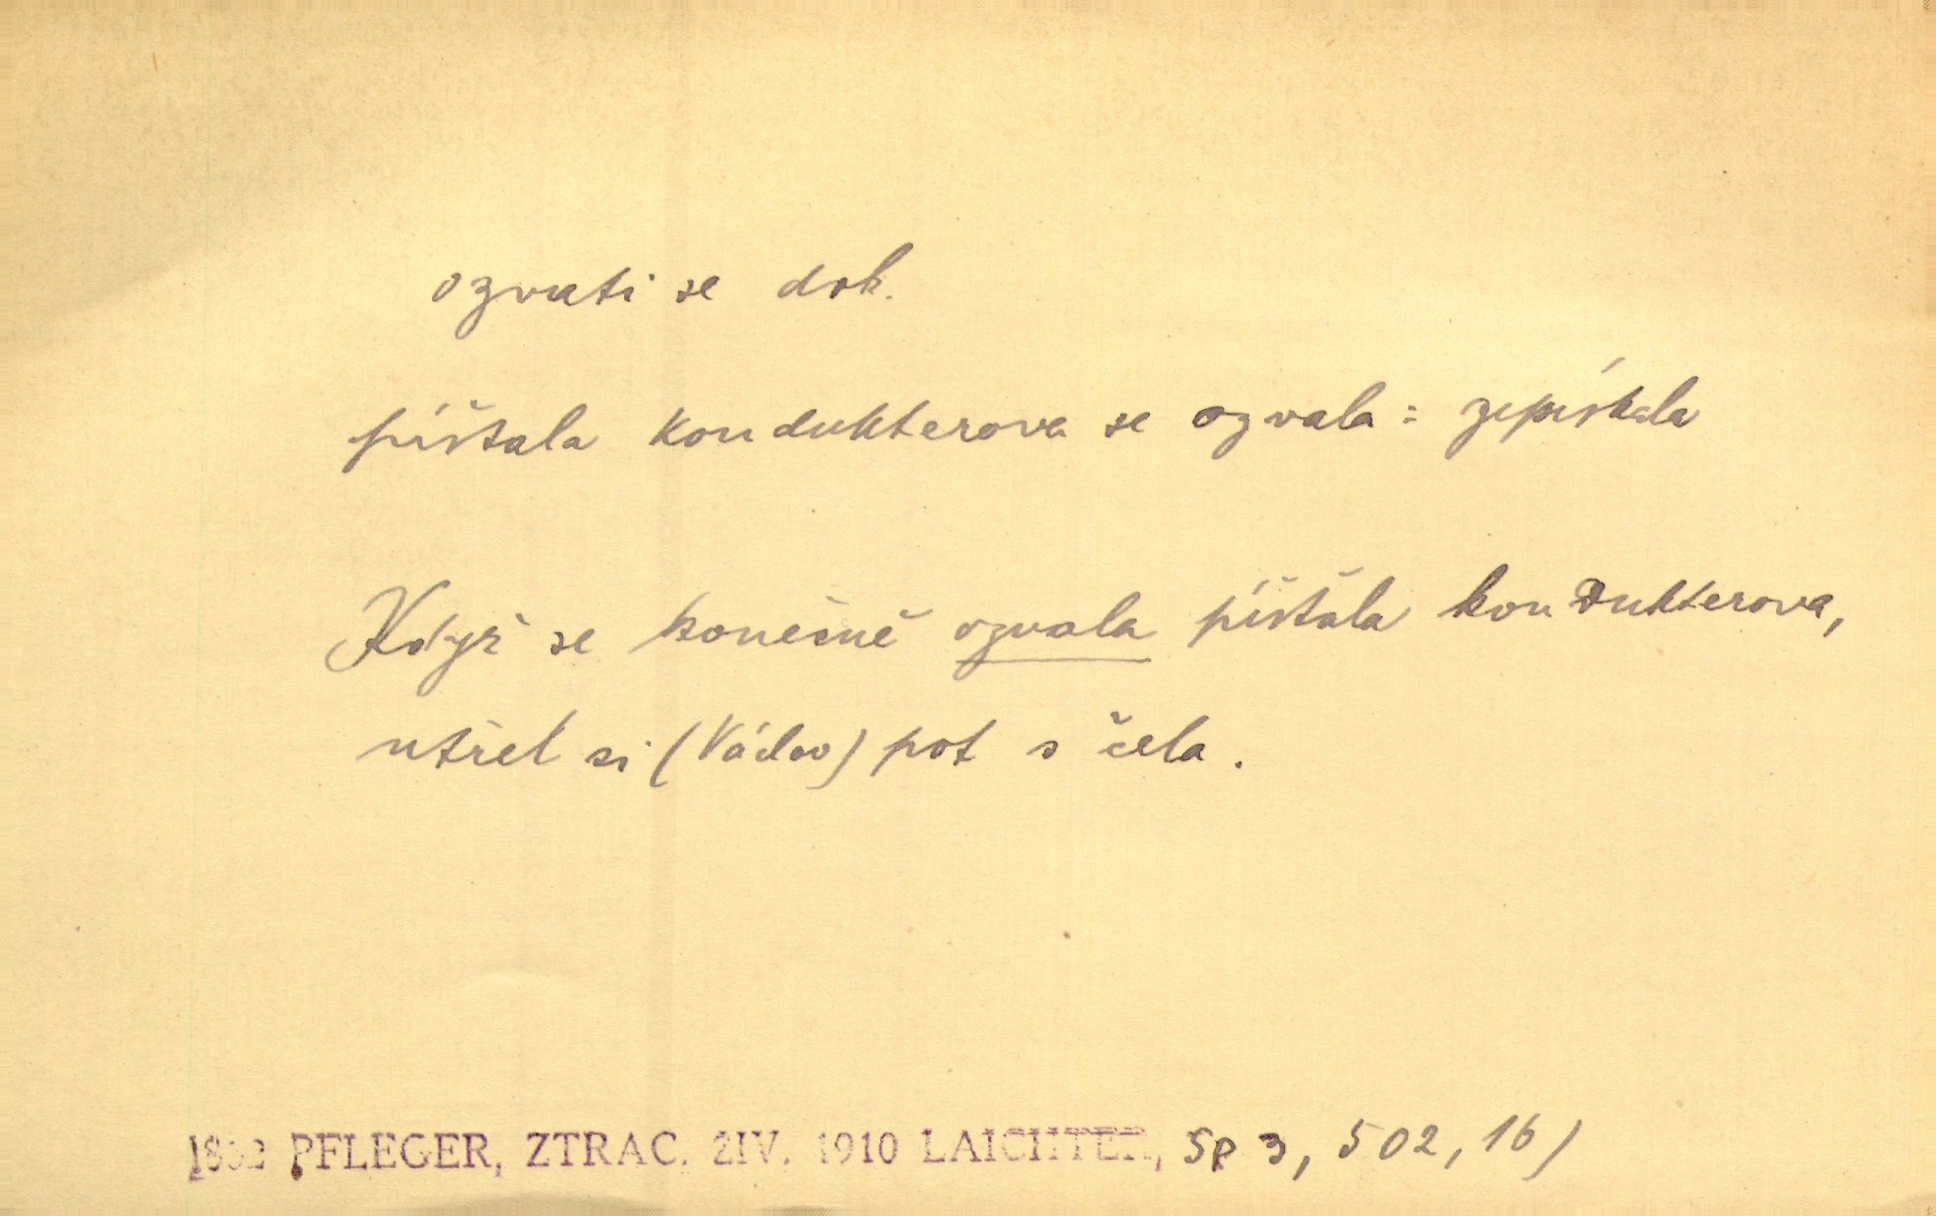 ozvati se dok.
píšťala kondukterova se ozvala = zapískala
Když se konečně ozvala píšťala kondukterova,
utřel si (Václav) pot s čela.
1862 PFLEGER, ZTRAC. ŽIV. 1910 LAICHTER, Sp 3, 502, 16)